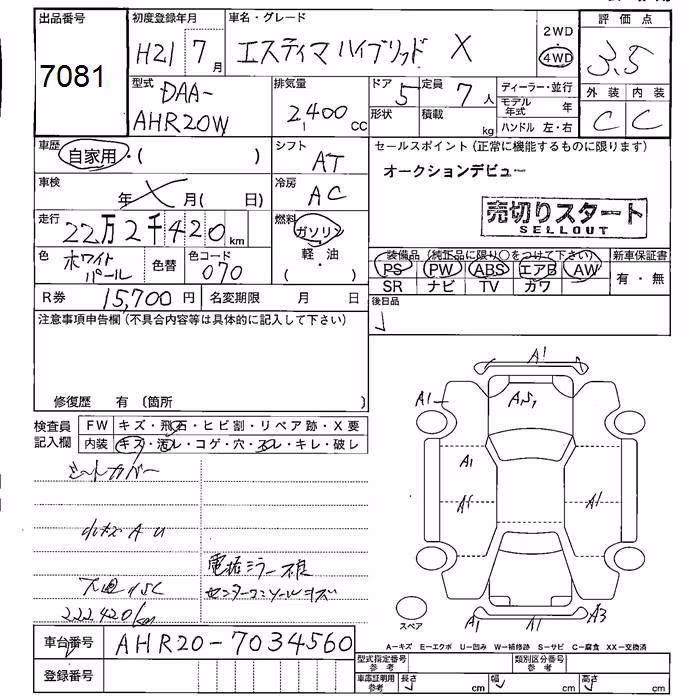 出品番号 初度登録年月 車名・グレード 2WD 4WD 評価点
7081 H21 7月 エスティマ ハイブリッド X 3.5
型式 排気量 ドア 定員 ディーラー・並行 外装 内装
DAA- 2,400 CC 5 7人 モデル年式 年 C C
AHR20W 形状 積載 kg ハンドル 左・右
車歴 自家用・( ) シフト AT セールスポイント(正常に機能するものに限ります)
オークションデビュー
車検 年 月( 日) 冷房 AC
売切りスタート
SELLOUT
走行 22万2千420km 燃料 ガソリン
軽・油
( )
色 ホワイトパール 色替 色コード 070
装備品(純正品に限り○をつけて下さい) 新車保証書
PS PW ABS エアB AW 有・無
SR ナビ TV カワ
R券 15,700円 名変期限 月 日 後日品
注意事項申告欄(不具合内容等は具体的に記入して下さい)
修復歴 有(箇所 )
検査員記入欄 FW キズ・飛石・ヒビ割・リペア跡・X要
内装 キズ・汚レ・コゲ・穴・スレ・キレ・破レ
シートカバー
A U
電格ミラー不良
センターコンソールキズ
222420km
A1
A1
A1
A1
A1
A1
A3
スペア
A-キズ E-エクボ U-凹み W-補修跡 S-サビ C-腐食 XX-交換済
車台番号 AHR20-7034560
型式指定番号 参考 類別区分番号 参考
登録番号
車庫証明用 参考 長さ cm 幅 cm 高さ cm